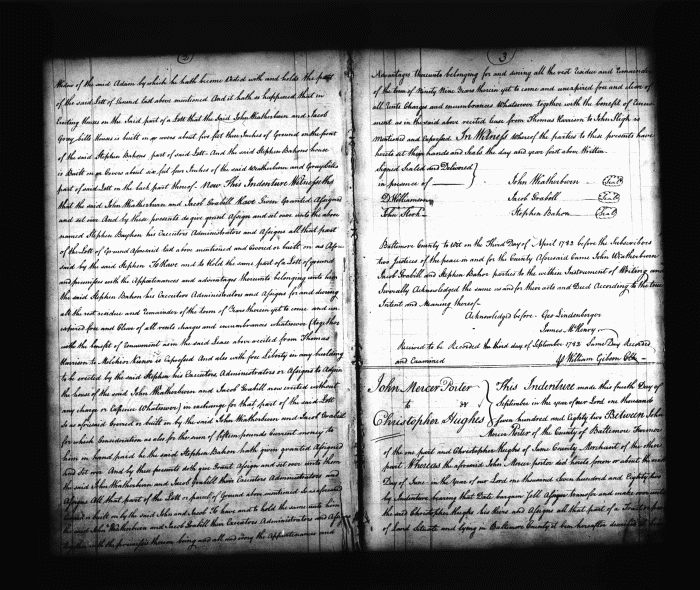 2
Heirs of the said Adam by which he hath become Vested with and holds the part
of the said Lott of Ground last above mentioned And it hath so happened that in
Erecting Houses on the said part of a Lott that the Said John Weatherburn and Jacob
Gray bills House is built on or over about five feet three Inches of Ground on the front
of the said Stephen Bahons part of said Lott. And the said Stephen Bahons house
is Built on or Covers about six feet four Inches of the said Weatherburn and Graybills
part of said Lott on the back part thereof. Now This Indenture Witnesseth
that the said John Weatherburn and Jacob Grabill Have Given Granted Assigned
and set over And by these presents do give grant Assign and set over unto the above
named Stephen Bayhon his Executors Administrators and Assigns all that part
of the Lott of Ground aforesaid last above mentioned and Covered or built on as Afore
said by the said Stephen To Have and to Hold the same part of a Lott of ground
and premisses with the Appurtenances and advantages thereunto belonging unto him
the said Stephen Bahon his Executors Administrators and Assigns for and during
all the rest residue and remainder of the term of Years therein yet to come and un
expired free and Clear of all rents charges and incumbrances whatsoever (together
with the benefit of Renewment as in the said Lease above recited from Thomas
Harrison to Melchior Keener is Expressed And also with free Liberty in any building
to be erected by the said Stephen his Executors Administrators or Assigns to Adjoin
the house of the said John Weatherburn and Jacob Grabill now erected without
any charge or Expence Whatsoever) in exchange for that part of the said Lott
So as aforesaid Covered or built on by the said John Weatherburn and Jacob Grabill
for which Consideration as also for the sum of fifteen pounds Current money to
him in hand paid he the said Stephen Bahon hath given granted Assigned
and Set over And by these presents doth give Grant Assign and set over unto them
the said John Weatherburn and Jacob Grabill their Executors Administrators and
Assigns All that part of the Lott or parcel of Ground above mentioned so as aforesaid
Covered or built on by the said John and Jacob To have and to hold the same unto them
the said John Weatherburn and Jacob Grabill their Executors Administrators and Assigns
together with the premisses thereon being and all and every the Appurtenances and
3
Advantages thereunto belonging for and during all the rest residue and Remainder
of the term of Ninety Nine Years therein yet to come and unexpired free and clear of
all Rents Charge and incumbrances Whatsoever Together with the benefit of Renew
ment as in the said above recited Lease from Thomas Harrison to John Sligh is
Mentioned and Expressed. In Witness Whereof the parties to these presents have
hereto set their hands and Seals the day and year first above Written
Signed Sealed and Delivered
in presence of
John Weatherburn Seal
D Williamson
Jacob Grabill Seal
John Stork
Stephen Bahon Seal
Baltimore County to Wit on the Third Day of April 1782 before the Subscribers
two Justices of the peace in and for the County Aforesaid Came John Weatherburn
Jacob Grabill and Stephen Bahon parties to the within Instrument of Writing and
Severally Acknowledged the same as and for their acts and Deed According to the true
Intent and Meaning thereof
Acknowledged before Geo Lindenberger
James McHenry
Received to be Recorded the third day of September 1782 Same Day Recorded
and Examined
William Gibson Clk
John Mercer Porter
to
Christopher Hughes
This Indenture made this fourth Day of
September in the year of our Lord one thousand
seven hundred and Eighty two Between John
Mercer Porter of the County of Baltimore Farmer
of the one part and Christopher Hughes of Same County Merchant of the other
part Whereas the aforesaid John Mercer porter did herein form or about the
Day of June in the year of our Lord one thousand Seven hundred and Eighty two
by Indenture bearing that Date bargain Sell Assign transfer and make over unto
the said Christopher Hughes his Heirs and Assigns all that part of a Tract
of Land Situate and lying in Baltimore County it ben hereafter described